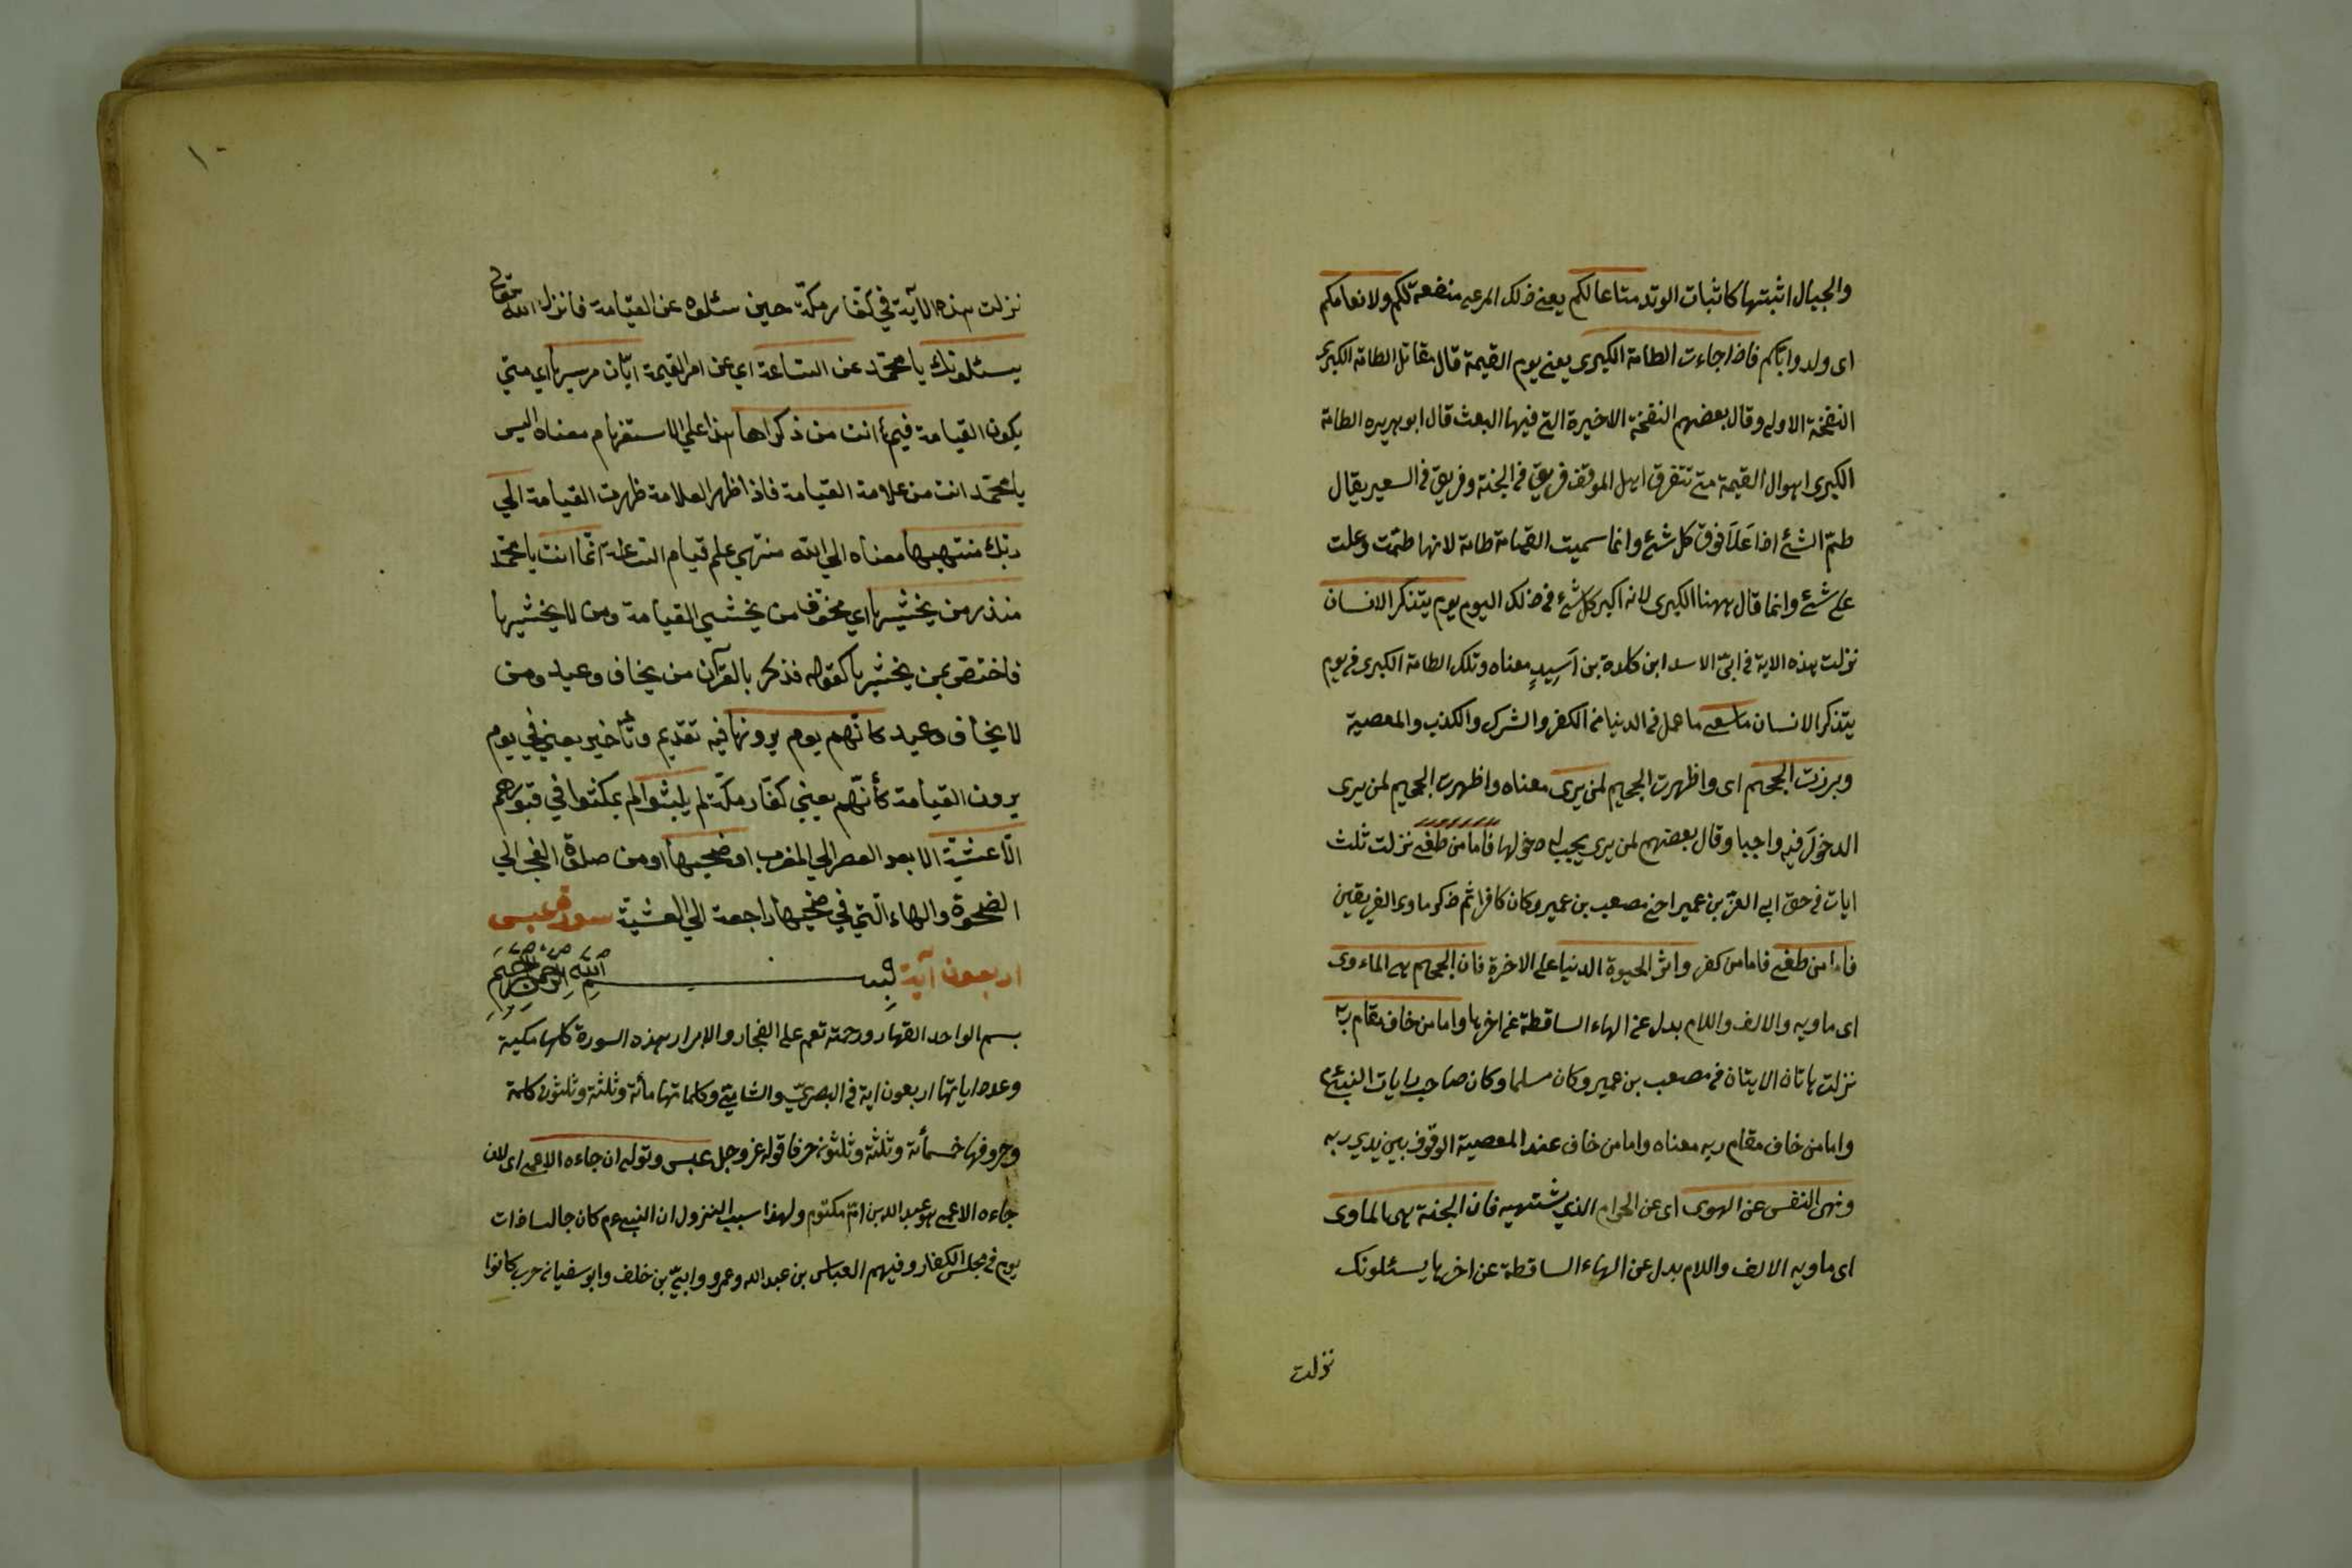 والجبال اثبتها كاثبات الوتد متاعا لكم يعنى ذلك المرعى منفعة لكم ولانعامكم
اى ولدوابكم فاذا جاءت الطامة الكبرى يعنى يوم القيمة قال مقاتل الطامة الكبرى
النفخة الاولى وقال بعضهم النفخة الاخيرة التى فيها البعث قال ابو هريره الطامة
الكبرى اهوال القيمة متى تتفرق اهل الموقف فريق فى الجنة وفريق فى السعير يقال
طمّ الشئ اذا عَلَا فوق كل شئ وانما سميت القيامة طامة لانها طمّت وعلت
على شئ وانما قال ههنا الكبرى لانه اكبر كل شئ فى ذلك اليوم يوم يتذكر الانسان
نزلت هذه الاية فى ابىّ الاسد ابن كلدة بن اَسِيدٍ معناه وتلك الطامة الكبرى فى يوم
يتذكر الانسان ما سعى ما عمل فى الدنيا من الكفر والشرك والكذب والمعصية
وبرزت الجحيم اى واظهرت الجحيم لمن يرى معناه واظهرت الجحيم لمن يرى
الدخولَ فيه واجبا وقال بعضهم لمن يرى يجب له دخولها فاما من طغى نزلت ثلث
ايات فى حق ابى العزّ بن عمير اخى مصعب بن عمير وكان كافرا ثم ذكر ماوى الفريقين
فاما من طغى فاما من كفر واثر الحيوة الدنيا على الاخرة فان الجحيم هى الماءوى
اى ماويه والالف واللام بدل عن الهاء الساقطة عن اخرها واما من خاف مقام ربه
نزلت هاتان الايتان فى مصعب بن عمير وكان مسلما وكان صاحب رايات النبىّ ءم
واما من خاف مقام ربه معناه واما من خاف عند المعصية الوقوف بين يدي ربه
ونهى النفس عن الهوى اى عن الحرام الذي يشتهيه فان الجنة هى الماوى
اى ماويه الالف واللام بدل عن الهاء الساقطة عن اخرها يسئلونك
نزلت
١٠
نزلت هذه الآية في كفار مكّة حين سئلوه عن القيامة فانزل الله تعالى
يسئلونك يا محمّد عن السّاعة اي عن امر القيمة ايّان مرسيها اي متي
يكون القيامة فيم انت من ذكراها هذا علي الاستفهام معناه اليس
يا محمّد انت من علامة القيامة فاذا ظهر العلامة ظهرت القيامة الي
ربّك منتهيها معناه الي الله منتهي علم قيام السّاعة انّما انت يا محمّد
منذر من يخشيها اي مخوّف من يخشي القيامة ومن لا يخشيها
فاختصّ بمن يخشيها كقوله فذكر بالقرآن من يخاف وعيد ومن
لا يخاف وعيد كانّهم يوم يرونها فيه تقديم وتأخير يعني في يوم
يرون القيامة كأنّهم يعني كفّار مكّة لم يلبثوا لم يمكثوا في قبورهم
الّا عشيّة الا بعد العصر الي المغرب او ضحيها او من صلوة الفجر الي
الضحوة والهاء الّتي في ضحيها راجعة الي العشيّة سورة عبس
اربعون آية بسم الله الرحمن الرحيم
بسم الواحد القهار ورحمته تعم على الفجار والابرار هذه السورة كلها مكية
وعدد اياتها اربعون اية فى البصريّ والشاميّ وكلماتها مأئة وثلثة وثلثون كلمة
وحروفها خمسمأئة وثلثة وثلثون حرفا قوله عز وجل عبس وتولى ان جاءه الاعمى اى لان
جاءه الاعمى هو عبد الله بن امّ مكتوم ولهذا سبب النزول ان النبى ءم كان جالسا ذات
يوم فى مجلس الكفار وفيهم العباس بن عبد الله وعمرو وابىّ بن خلف وابو سفيان حرب كانوا